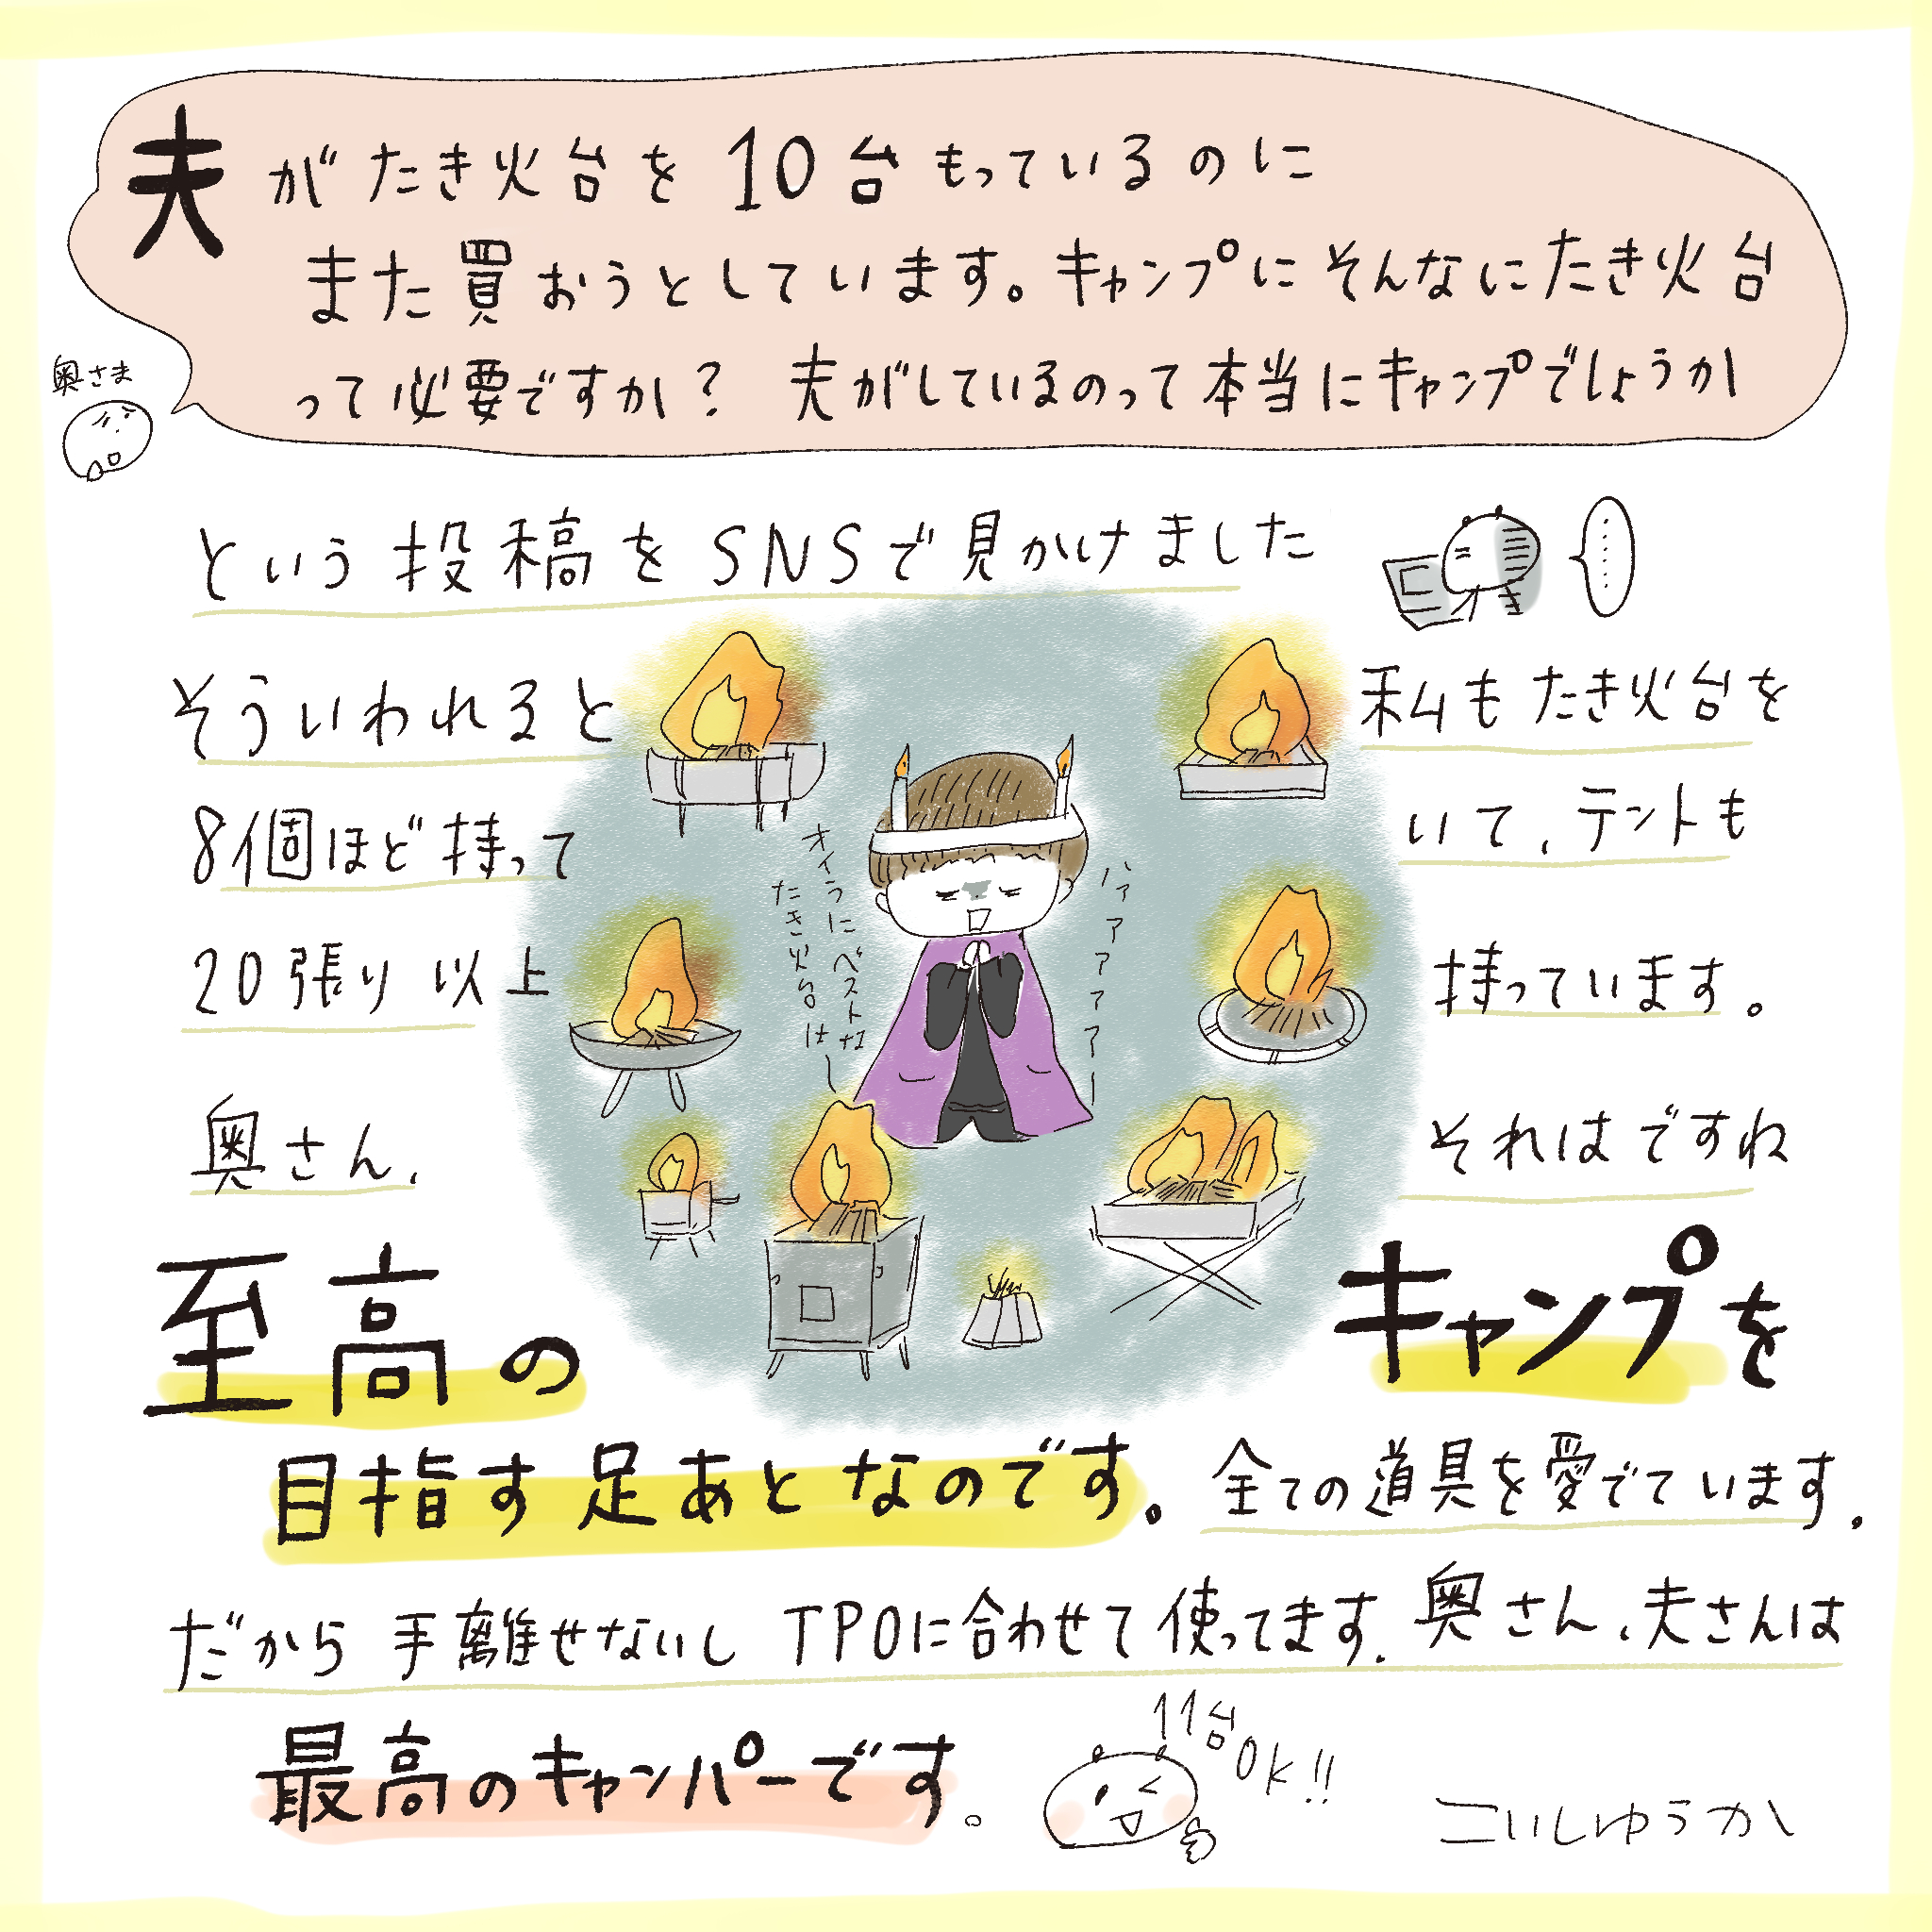 夫がたき火台を10台もっているのに
また買おうとしています。キャンプにそんなにたき火台
って必要ですか？ 夫がしているのって本当にキャンプでしょうか
奥さま
という投稿をSNSで見かけました
……
そういわれると 私もたき火台を
8個ほど持って いて、テントも
20張り以上 持っています。
オイラにベストな
たき火台はー
ハァアアアアアー
奥さん、 それはですね
至高の キャンプを
目指す足あとなのです。全ての道具を愛でています。
だから手離せないしTPOに合わせて使ってます。奥さん、夫さんは
最高のキャンパーです。
11台OK!!
こいしゆうか